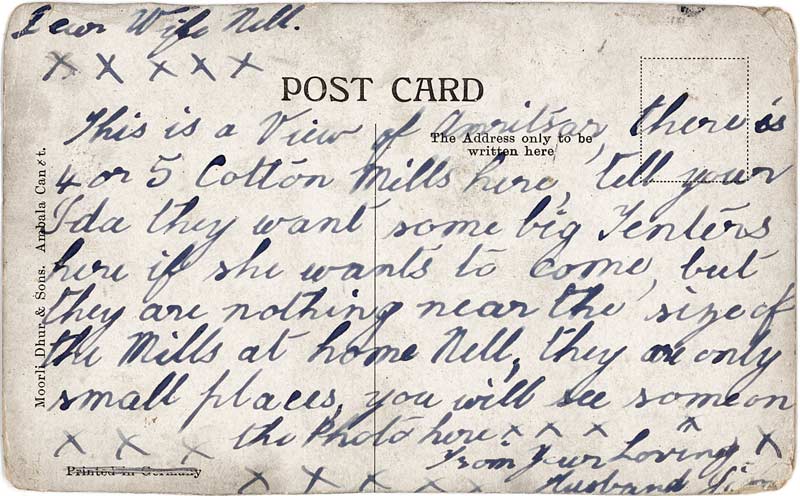 Dear Wife Nell.
x x x x x
POST CARD
This is a View of Amritsar, there is
The Address only to be
written here
4 or 5 Cotton Mills here, tell your
Ida they want some big Tenters
here if she wants to come, but
they are nothing near the size of
the Mills at home Nell, they are only
small places, you will see some on
the Photo here x x x x x
x x x
From Your Loving
Printed in Germany
x x x x x
Husband
Moorli Dhur & Sons. Ambala Cantt.